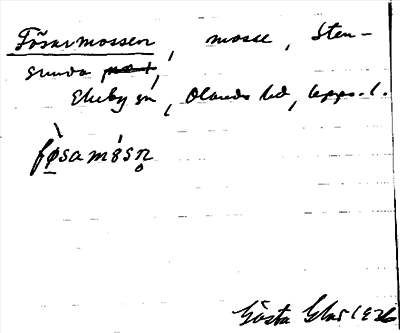 Fösarmossen, mosse, Sten-
sunda
Ekeby sn, Olands hd, Upps. l.
fø̀samósn̥
Gösta